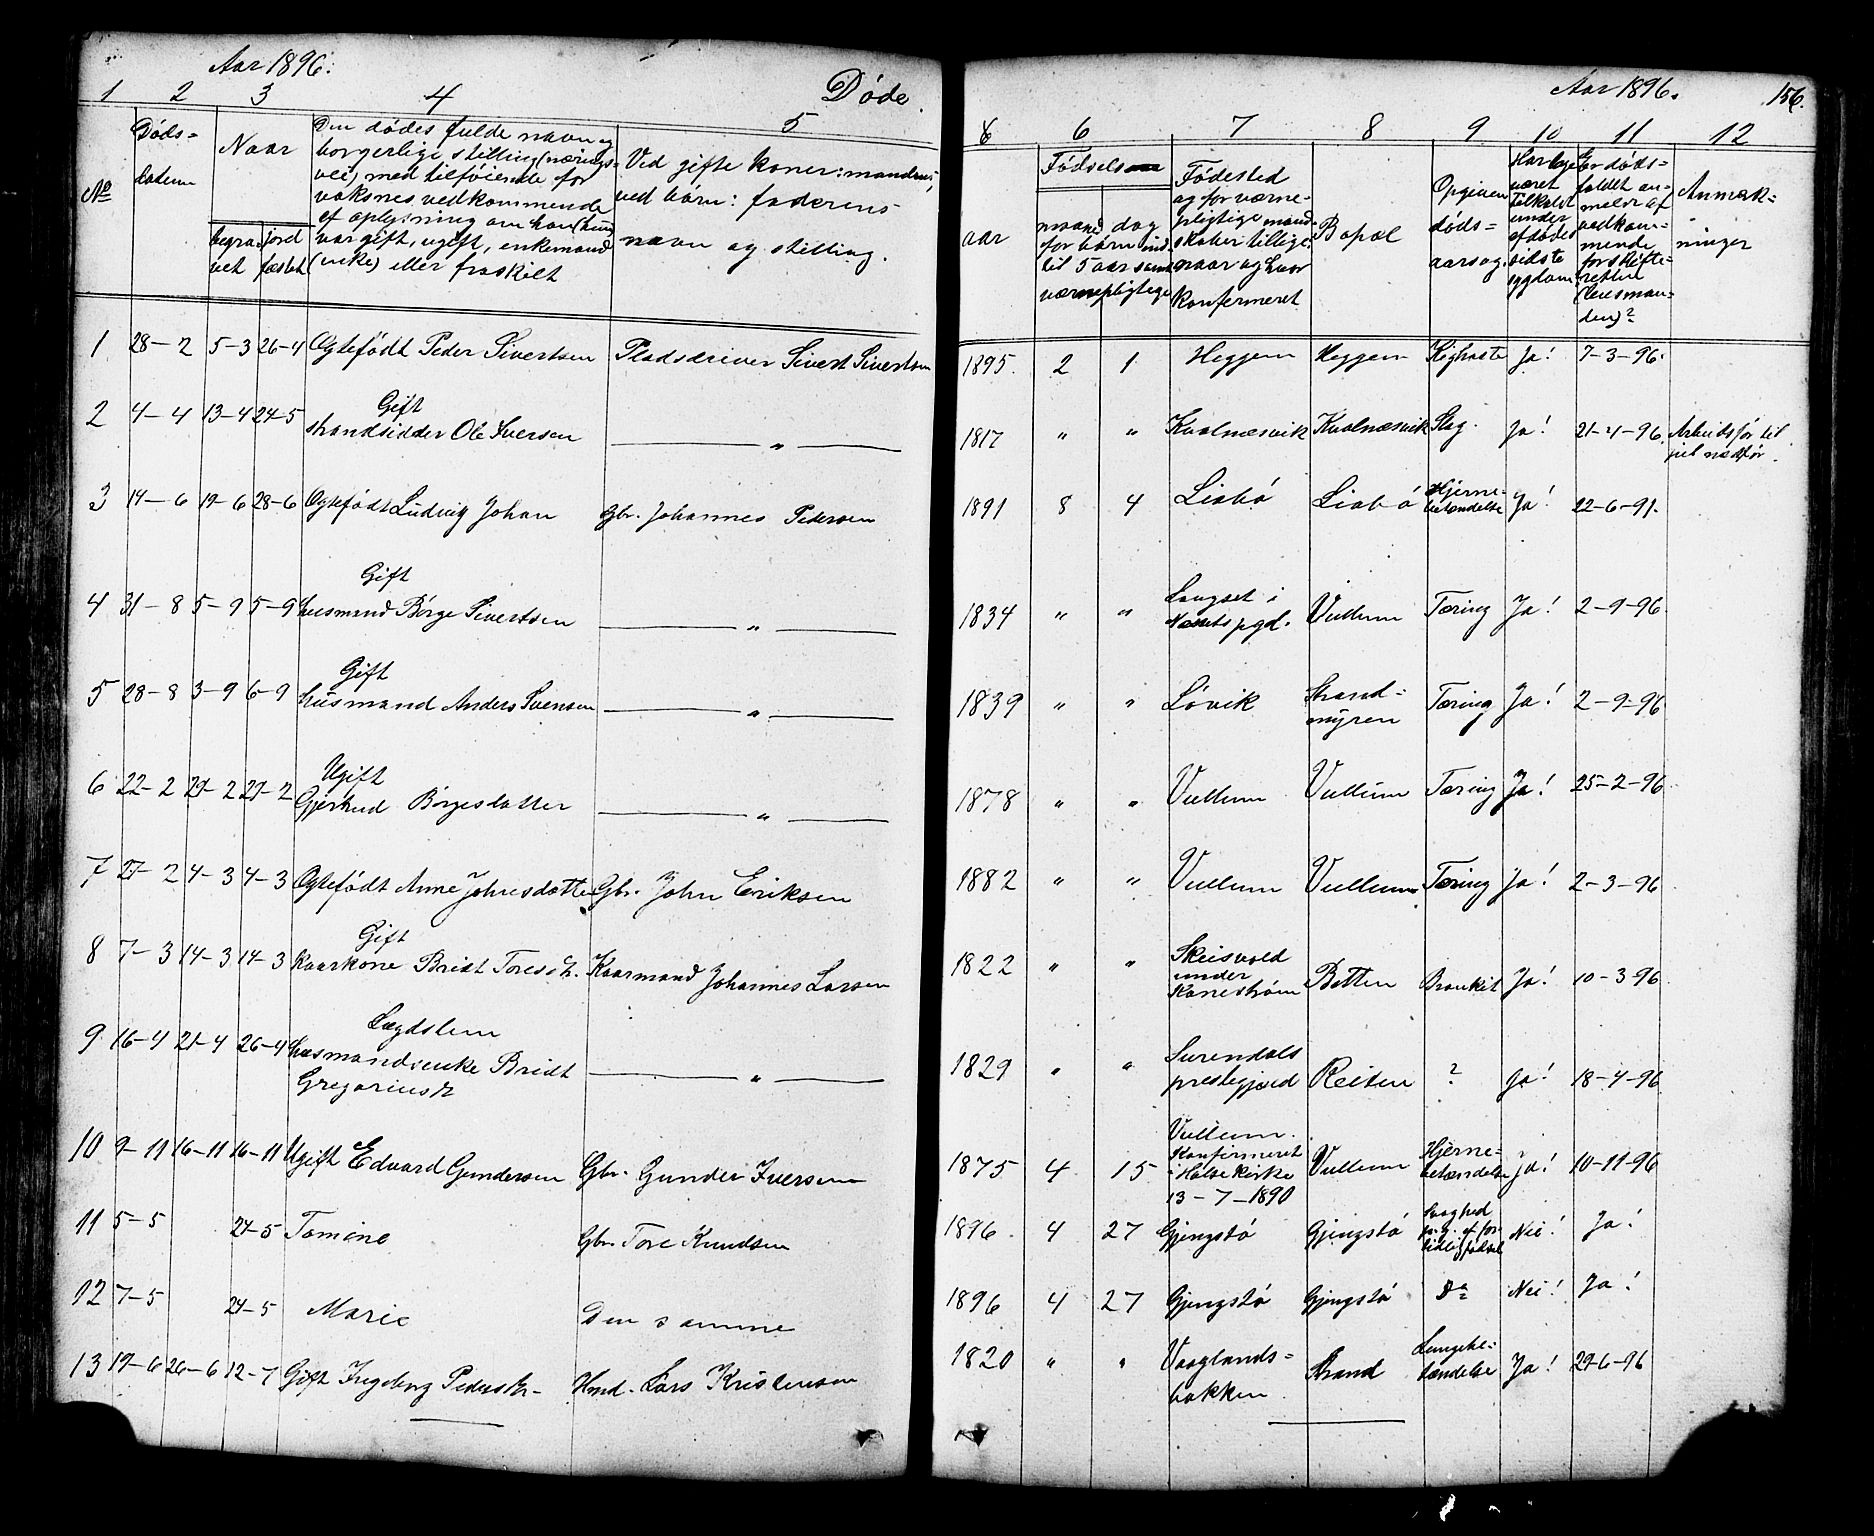 Aar 1896.
Døde.
1 2 3 4 5
No
Døds=
datum
Naar
begra=
vet
jord
fæstet
Den dødes fulde navn og
borgerlige stilling (nærings=
vei) med tilføiende for
voksnes vedkommende
af oplysning om han (hun)
var gift, ugift, enkemand
(enke) eller fraskilt
Ved gifte koner: mandens,
ved børn: faderens
navn og stilling.
1 28-2 5-3 26-4 Ægtefødt Peder Sivertsen Pladsdriver Sivert Sivertsen
Gift
2 4-4 13-4 24-5 strandsidder Ole Iversen — " —
3 14-6 19-6 28-6 Ægtefødt Ludvig Johan Gbr. Johannes Pedersen
Gift
4 31-8 5-9 5-9 husmand Børge Sivertsen — " —
Gift
5 28-8 3-9 6-9 husmand Anders Svensen — " —
Ugift
6 22-2 27-2 27-2 Gjertrud Børgesdatter — " —
7 27-2 4-3 4-3 Ægtefødt Anne Johnesdatter Gbr. John Eriksen
Gift
8 7-3 14-3 14-3 Kaarkone Bridt Toresdt. Kaarmand Johannes Larsen
Lægdslem
9 16-4 21-4 26-4 husmandsenke Bridt — " —
Gregoriusdt
10 9-11 16-11 16-11 Ugift Edvard Gundersen Gbr. Gunder Iversen
11 5-5 24-5 Tomine Gbr. Tore Knudsen
12 7-5 24-5 Marie Den samme
13 19-6 26-6 12-7 Gift Ingeborg Pedersdt. Hmd. Lars Kristensen
Aar 1896. 156.
6 7 8 9 10 11 12
Fødsels
aar
maaned
for børn ind
til 5 aar samt
værnepligtige
dag
Fødested
og for værne-
pligtige mand-
skaber tillige
naar og hvor
konfirmeret
Bopæl
Opgiven
døds=
aarsag.
Har læge
været
tilkaldt
under
afdødes
sidste
sygdom
Er døds=
faldet an-
meldt af
vedkom-
mende
for skifte-
retten
(lensman-
den)?
Anmærk=
ninger
1895. 2 1 Heggem Heggem Kighoste Ja! 7-3-96.
1817 " " Kvalnæsvik Kvalnæsvik Slag. Ja! 21-4-96. Arbeidsfør til
1891 8 4 Liabø Liabø Hjerne-
betændelse Ja! 22-6-91.
1834 " " Langset i
Næsets pgd. Vullum Tæring Ja! 2-9-96.
1839 " " Løvik Strand=
myren Tæring Ja! 2-9-96
1878 " " Vullum Vullum Tæring Ja! 25-2-96
1882 " " Vullum Vullum Tæring Ja! 2-3-96
1822 " " Skeisvold
under
Kanestrøm Botten Bronkit Ja! 10-3-96
1829 " " Surendals
prestegjæld Reiten ? Ja! 18-4-96
1875 4 15 Vullum.
Konfirmeret
i Halse kirke
13-7-1890 Vullum Hjerne-
betændelse Ja! 10-11-96
1896. 4 27 Gjengstø Gjengstø Svaghed
p.g. af for
tidlig fødsel Nei! Ja!
1896 4 27 Gjengstø Gjengstø Do Nei! Ja!
1820 " " Vaaglands=
bakken Strand Lungebe-
tændelse Ja! 29-6-96